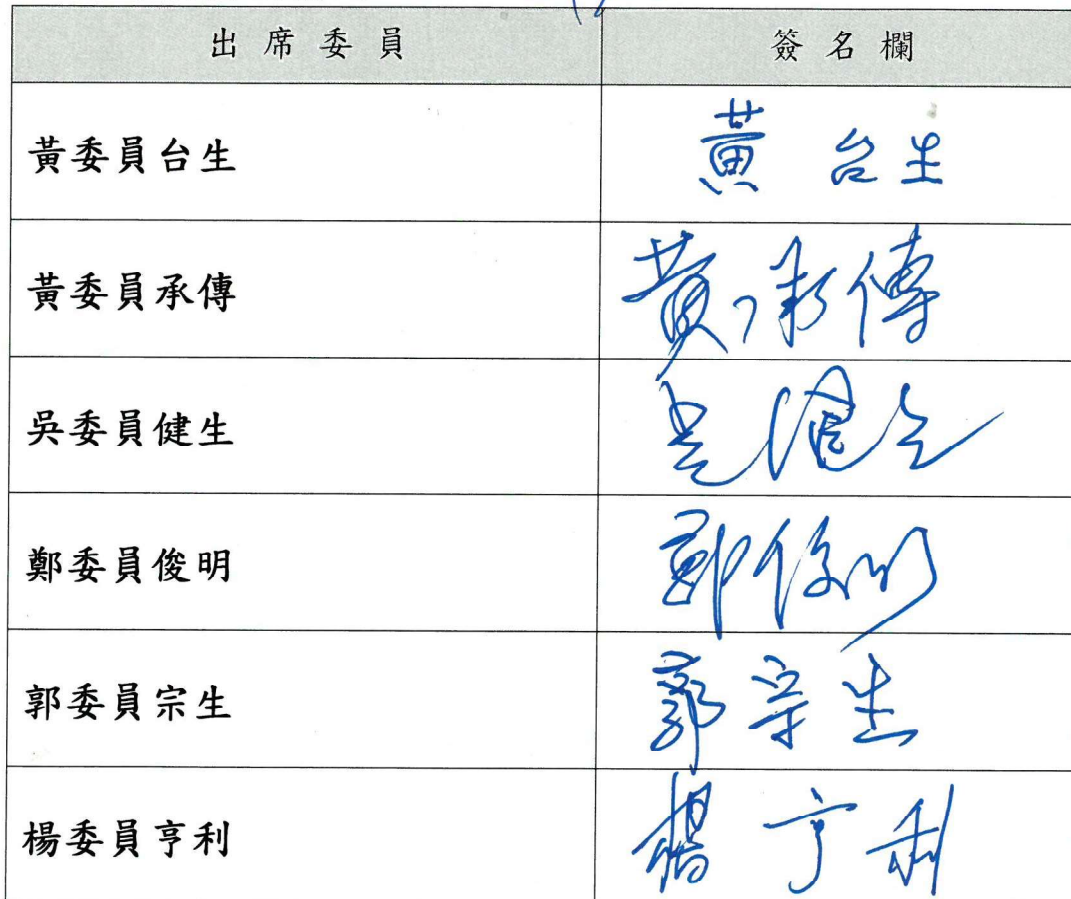 出席委員 簽名欄
黃委員台生 黃台生
黃委員承傳 黃承傳
吳委員健生 吳健生
鄭委員俊明 鄭俊明
郭委員宗生 郭宗生
楊委員亨利 楊亨利